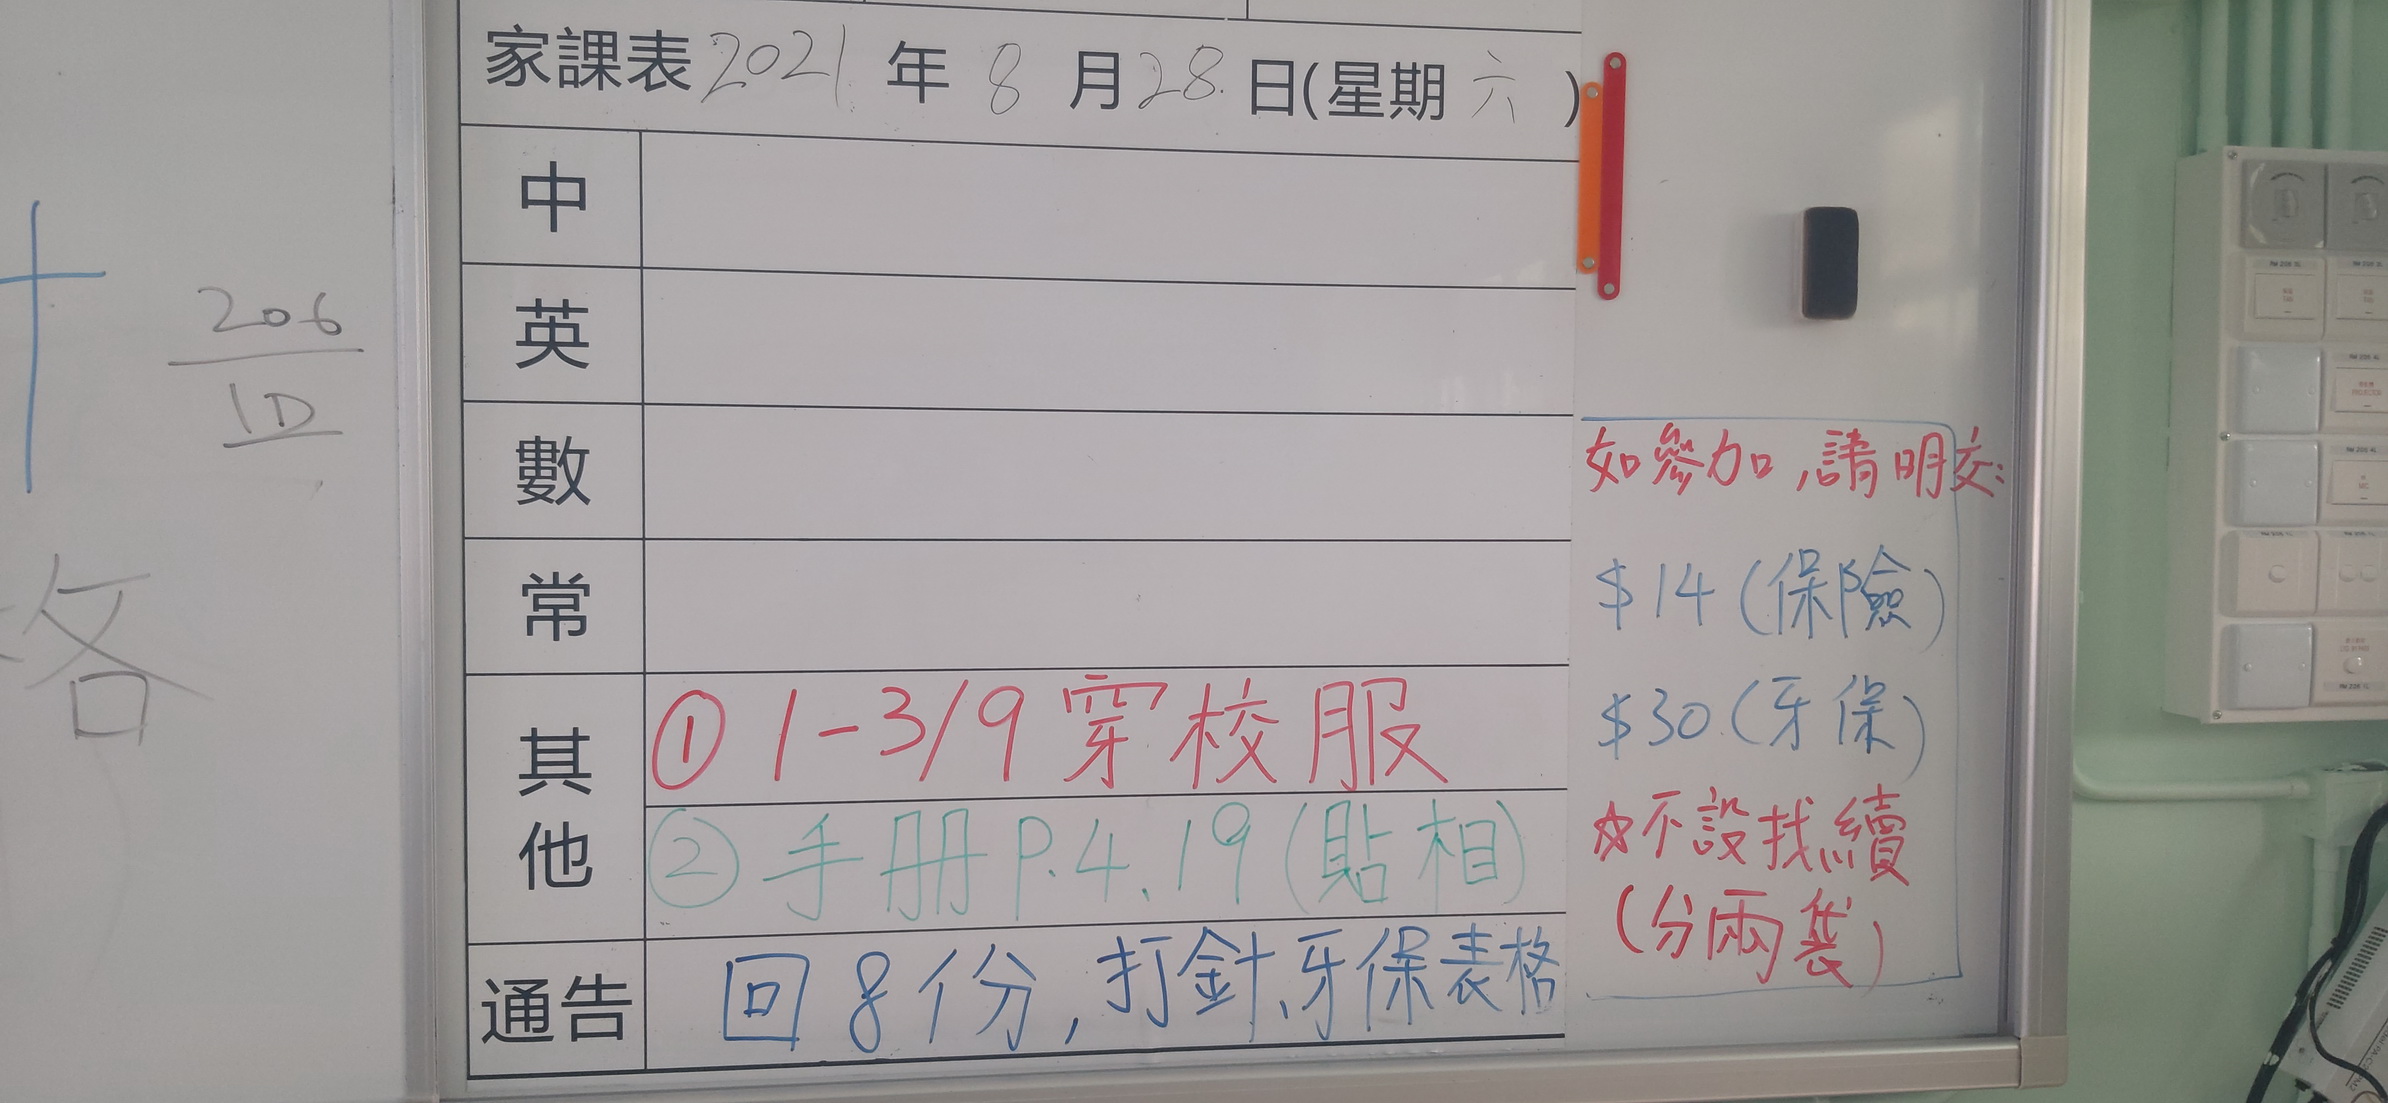 206
1D
各
家課表2021年8月28日(星期六)
中
英
數
常
其他
①1-3/9穿校服
②手册P.4.19(貼相)
通告
回8份,打針、牙保表格
如參加,請明交:
$14(保險)
$30(牙保)
☆不設找續
(分兩袋)